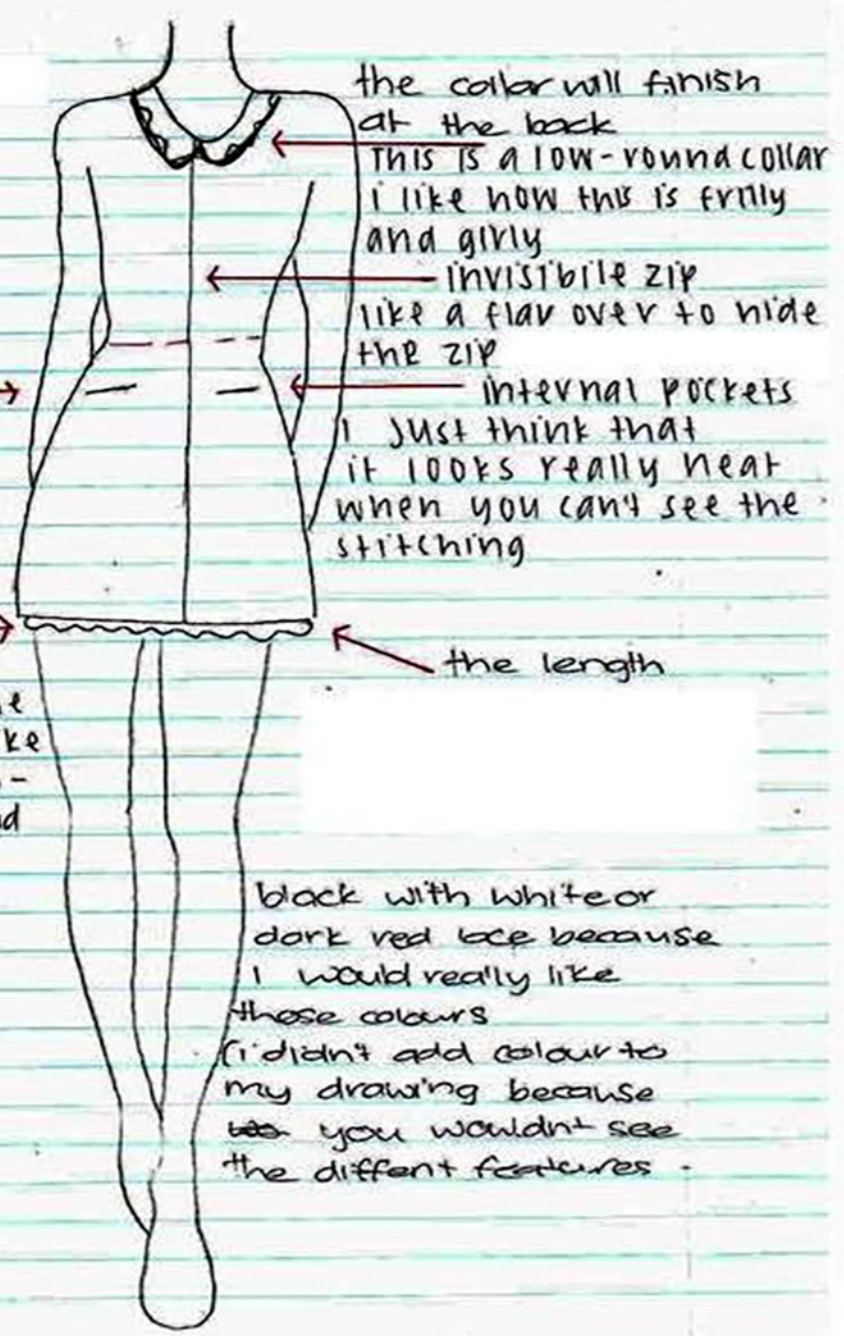 the collar will finish
at the back
This is a low-round collar
i like how this is frilly
and girly
invisibile zip
like a flav over to hide
the zip
internal pockets
I just think that
it looks really neat
when you can't see the
stitching
the length
ke
nd
black with white or
dark red lace because
I would really like
those colours
(i didn't add colour to
my drawing because
you wouldn't see
the diffent features.